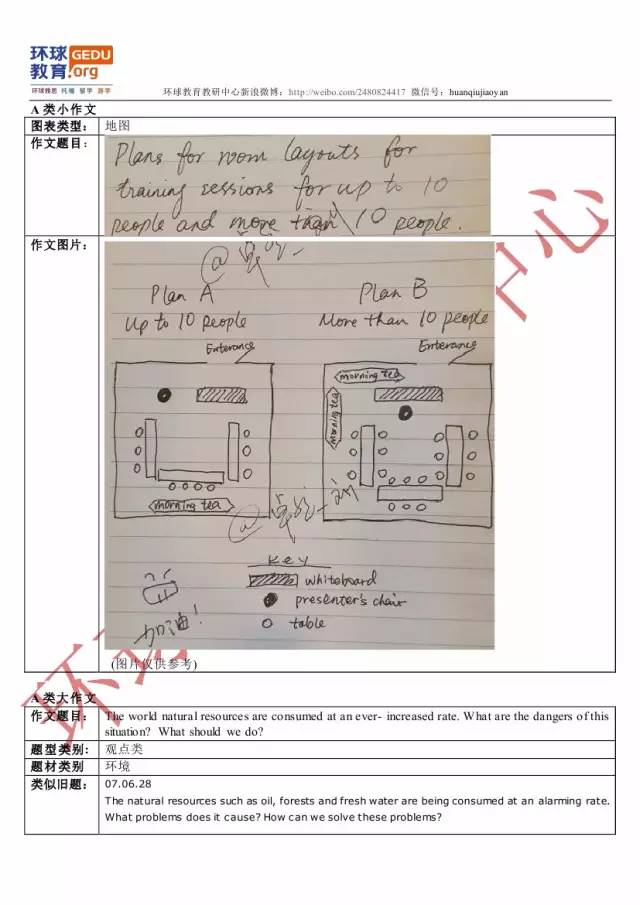 环球 GEDU
教育.org
环球雅思 托福 留学 游学
环球教育教研中心新浪微博：http://weibo.com/2480824417 微信号：huanqiujiaoyan
A 类小作文
图表类型： 地图
作文题目：
Plans for room layouts for
training sessions for up to 10
people and more than 10 people.
作文图片：
Plan A
Up to 10 people
Enterance
morning tea
Plan B
More than 10 people
Enterance
morning tea
morning tea
Key
whiteboard
presenter's chair
table
加油！
(图片仅供参考)
A 类大作文
作文题目： The world natural resources are consumed at an ever- increased rate. What are the dangers of this
situation? What should we do?
题型类别： 观点类
题材类别 环境
类似旧题： 07.06.28
The natural resources such as oil, forests and fresh water are being consumed at an alarming rate.
What problems does it cause? How can we solve these problems?